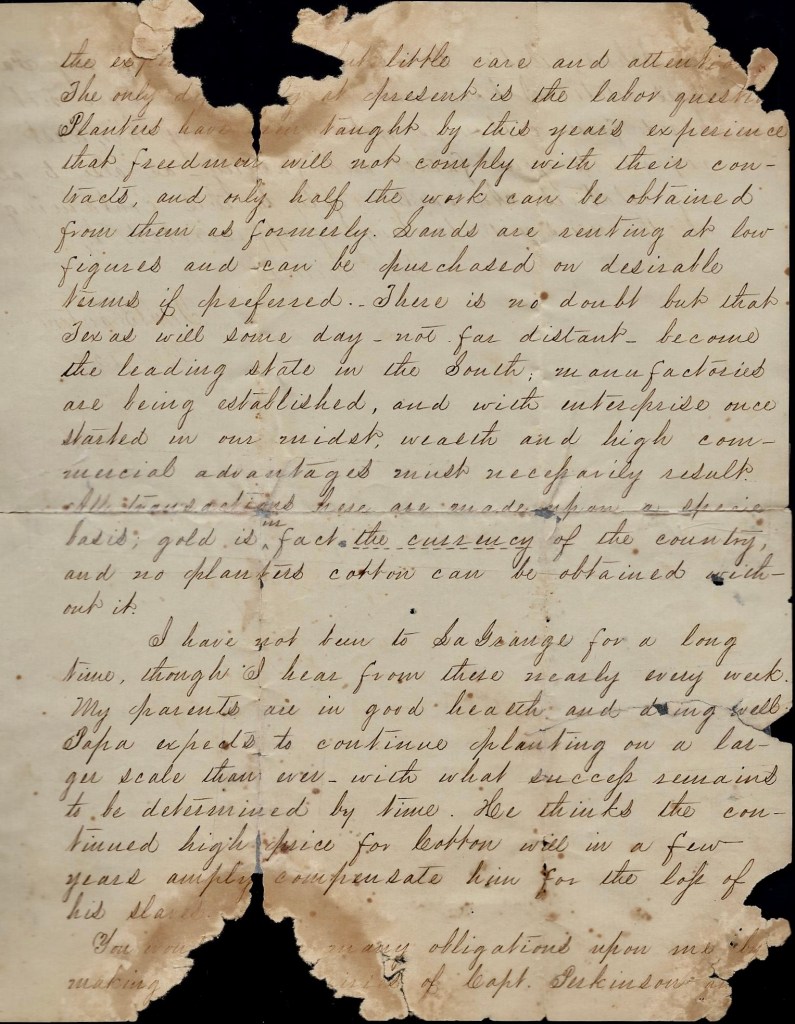 the little care and
The only at present is the labor
Planters have taught by this year's experience
that freedmen will not comply with their con-
tracts, and only half the work can be obtained
from them as formerly. Lands are renting at low
figures and can be purchased on desirable
terms if preferred. There is no doubt but that
Texas will some day - not far distant - become
the leading state in the South; manufactories
are being established, and with enterprise once
started in our midst, wealth and high com-
mercial advantages must necessarily result.
All transactions here are made upon a specie
basis; gold is in fact the currency of the country,
and no planters cotton can be obtained with-
out it.
I have not been to LaGrange for a long
time, though I hear from there nearly every week.
My parents are in good health and doing well.
Papa expects to continue planting on a lar-
ger scale than ever - with what success remains
to be determined by time. He thinks the con-
tinued high price for Cotton will in a few
years amply compensate him for the loss of
his
You many obligations upon me by
making of Capt. Perkinson